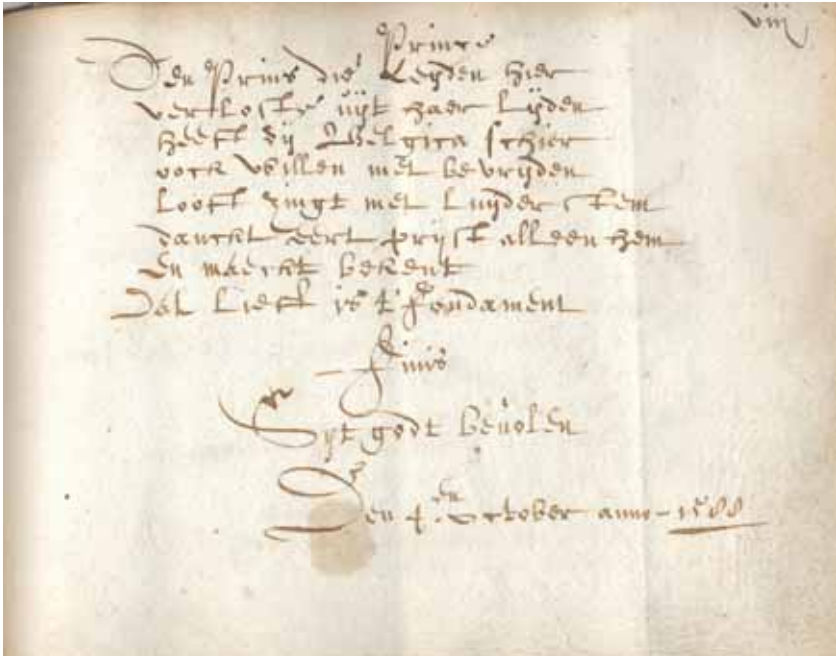 viij
Prince
Den Prins die Leyden hier
verloste uijt haer Lijden
heeft dij Belgica schier
oock willen met bevrijden
Looft zingt met Luyder stem
danckt eert prijst alleen hem
En maeckt bekent
Dat Lieft is t' Fondament
Finis
Syt godt bevolen
Den 4en October anno 1588